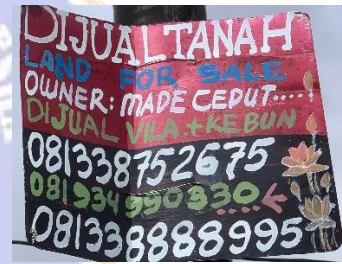 DIJUAL TANAH
LAND FOR SALE
OWNER: MADE CEDUT....!
DIJUAL VILA+KEBUN
081338752675
081934990330
081338888995